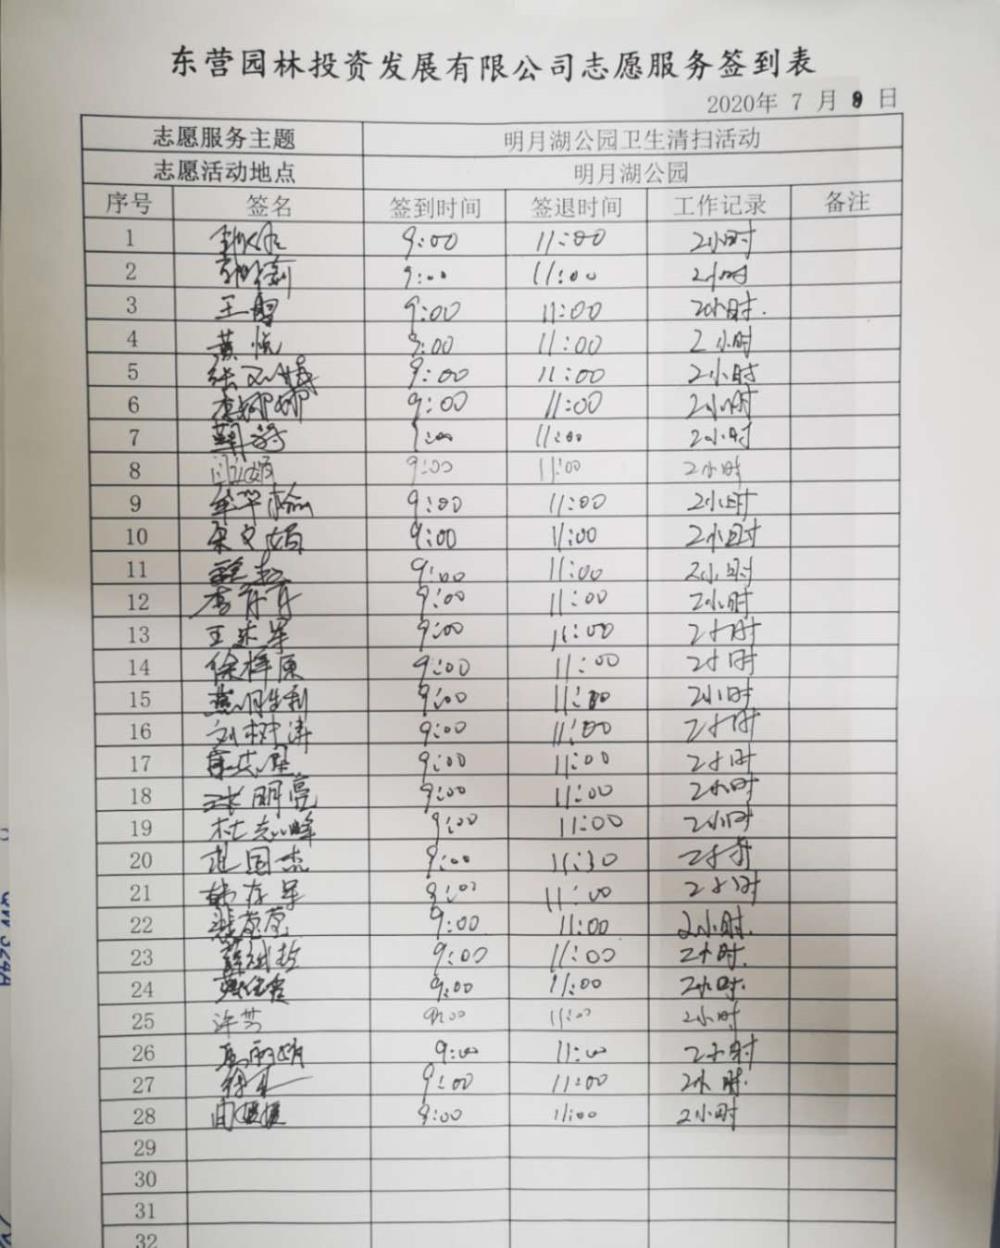 东营园林投资发展有限公司志愿服务签到表
2020年 7 月 9 日
志愿服务主题 明月湖公园卫生清扫活动
志愿活动地点 明月湖公园
序号 签名 签到时间 签退时间 工作记录 备注
1 9:00 11:00 2小时
2 9:00 11:00 2小时
3 9:00 11:00 2小时.
4 黄悦 9:00 11:00 2小时
5 9:00 11:00 2小时
6 李娜娜 9:00 11:00 2小时
7 9:00 11:00 2小时
8 9:00 11:00 2小时
9 9:00 11:00 2小时
10 9:00 11:00 2小时
11 9:00 11:00 2小时
12 李青青 9:00 11:00 2小时
13 9:00 11:00 2小时
14 徐梓原 9:00 11:00 2小时
15 燕胜利 9:00 11:00 2小时
16 刘树涛 9:00 11:00 2小时
17 9:00 11:00 2小时
18 张明亮 9:00 11:00 2小时
19 杜志峰 9:00 11:00 2小时
20 赵国杰 9:00 11:30 2小时
21 韩存军 9:00 11:00 2小时
22 9:00 11:00 2小时.
23 薛斌哲 9:00 11:00 2小时.
24 9:00 11:00 2小时.
25 许芳 9:00 11:00 2小时
26 9:00 11:00 2小时
27 9:00 11:00 2小时.
28 9:00 11:00 2小时
29
30
31
32